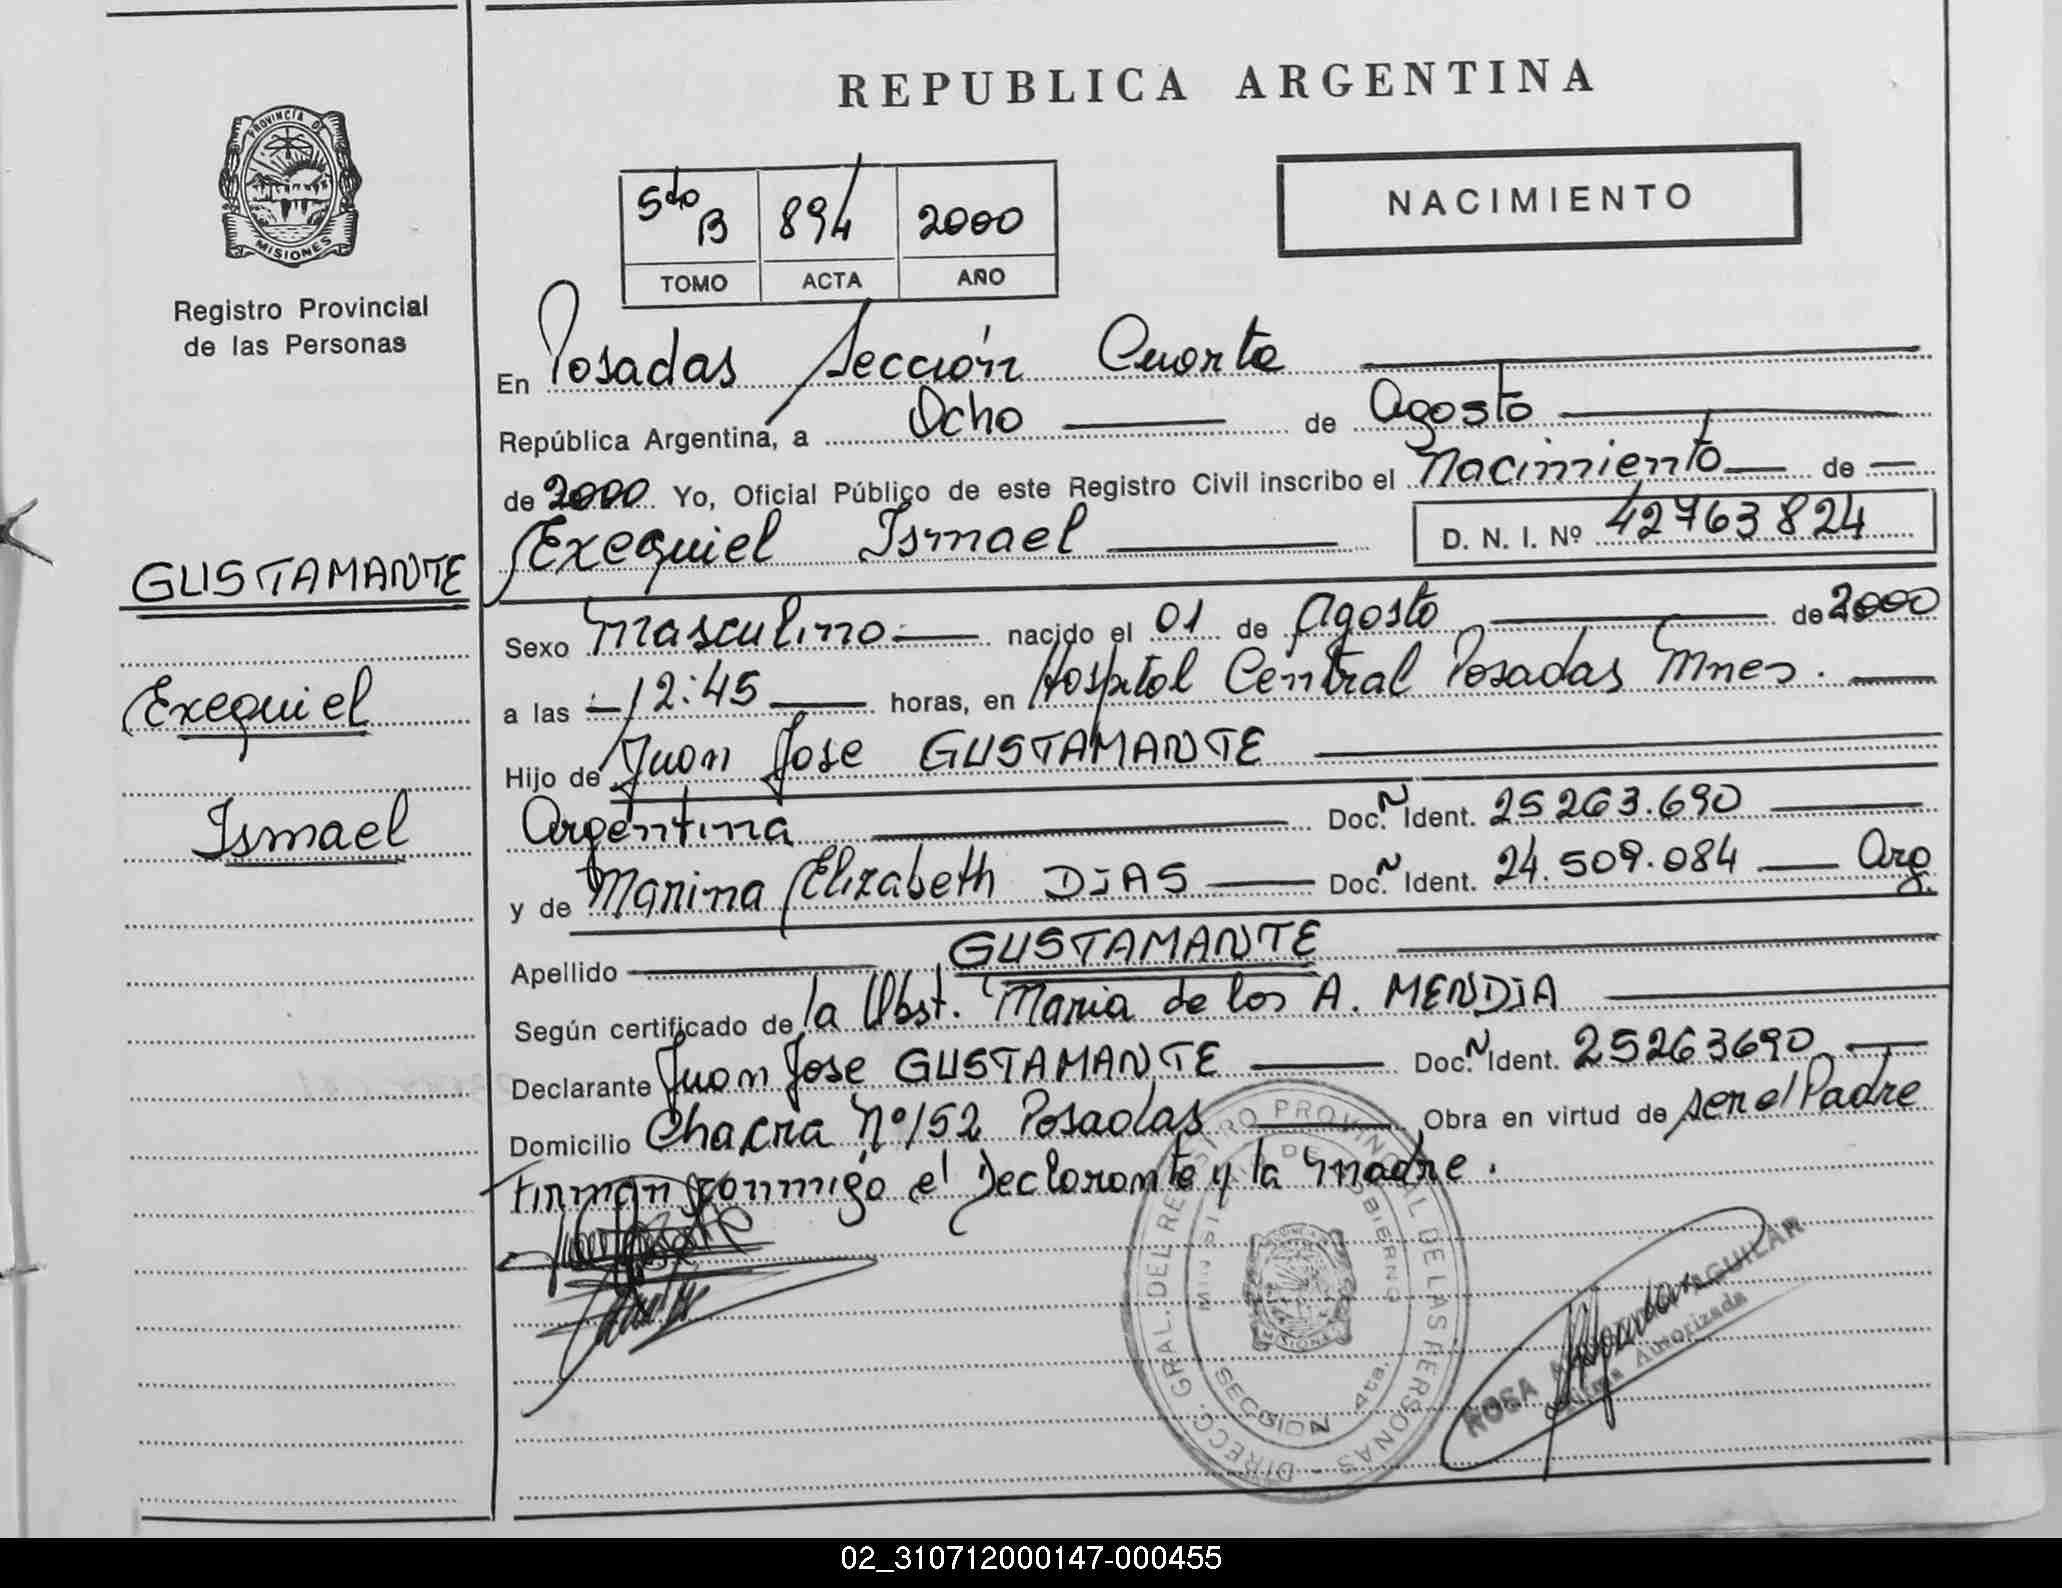 REPUBLICA ARGENTINA
PROVINCIA DE
MISIONES
Registro Provincial
de las Personas
NACIMIENTO
5to B 894 2000
TOMO ACTA AÑO
En Posadas Sección Cuarta
República Argentina, a Ocho de Agosto
de 2000 Yo, Oficial Público de este Registro Civil inscribo el Nacimiento de
Exequiel Ismael D. N. I. Nº 42763824
GUSTAMANTE
Exequiel
Ismael
Sexo Masculino nacido el 01 de Agosto de 2000
a las 12:45 horas, en Hospital Central Posadas Mnes.
Hijo de Juan Jose GUSTAMANTE
Argentina Doc. N Ident. 25263.690
y de Marina Elizabeth DIAS Doc. N Ident. 24.509.084 Arg.
Apellido GUSTAMANTE
Según certificado de la Obst. Maria de los A. MENDIA
Declarante Juan Jose GUSTAMANTE Doc. N Ident. 25263690
Domicilio Chacra Nº 152 Posadas Obra en virtud de ser el Padre
Firman conmigo el Declarante y la Madre.
DIRECC. GRAL. DEL REGISTRO PROVINCIAL DE LAS PERSONAS
MINISTERIO DE GOBIERNO
SECCION 4ta.
ROSA AGUILAR
Autorizada
02_310712000147-000455